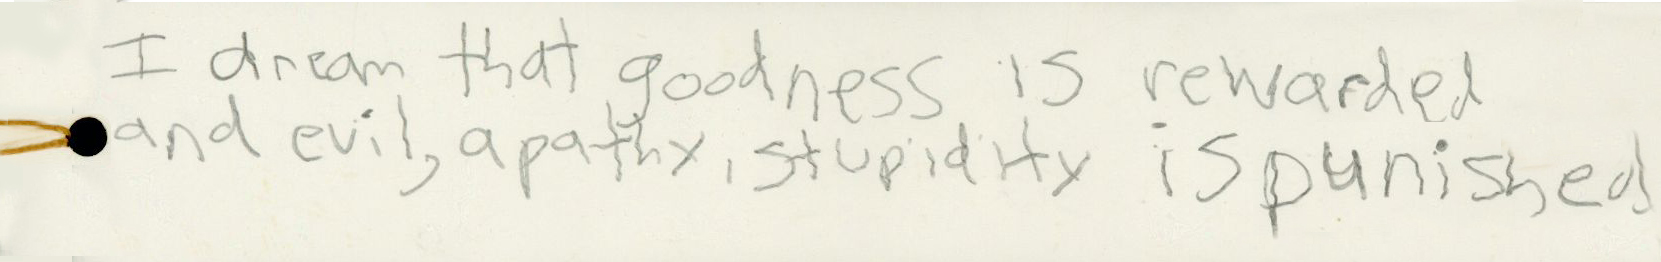 I dream that goodness is rewarded
and evil, apathy, stupidity is punished